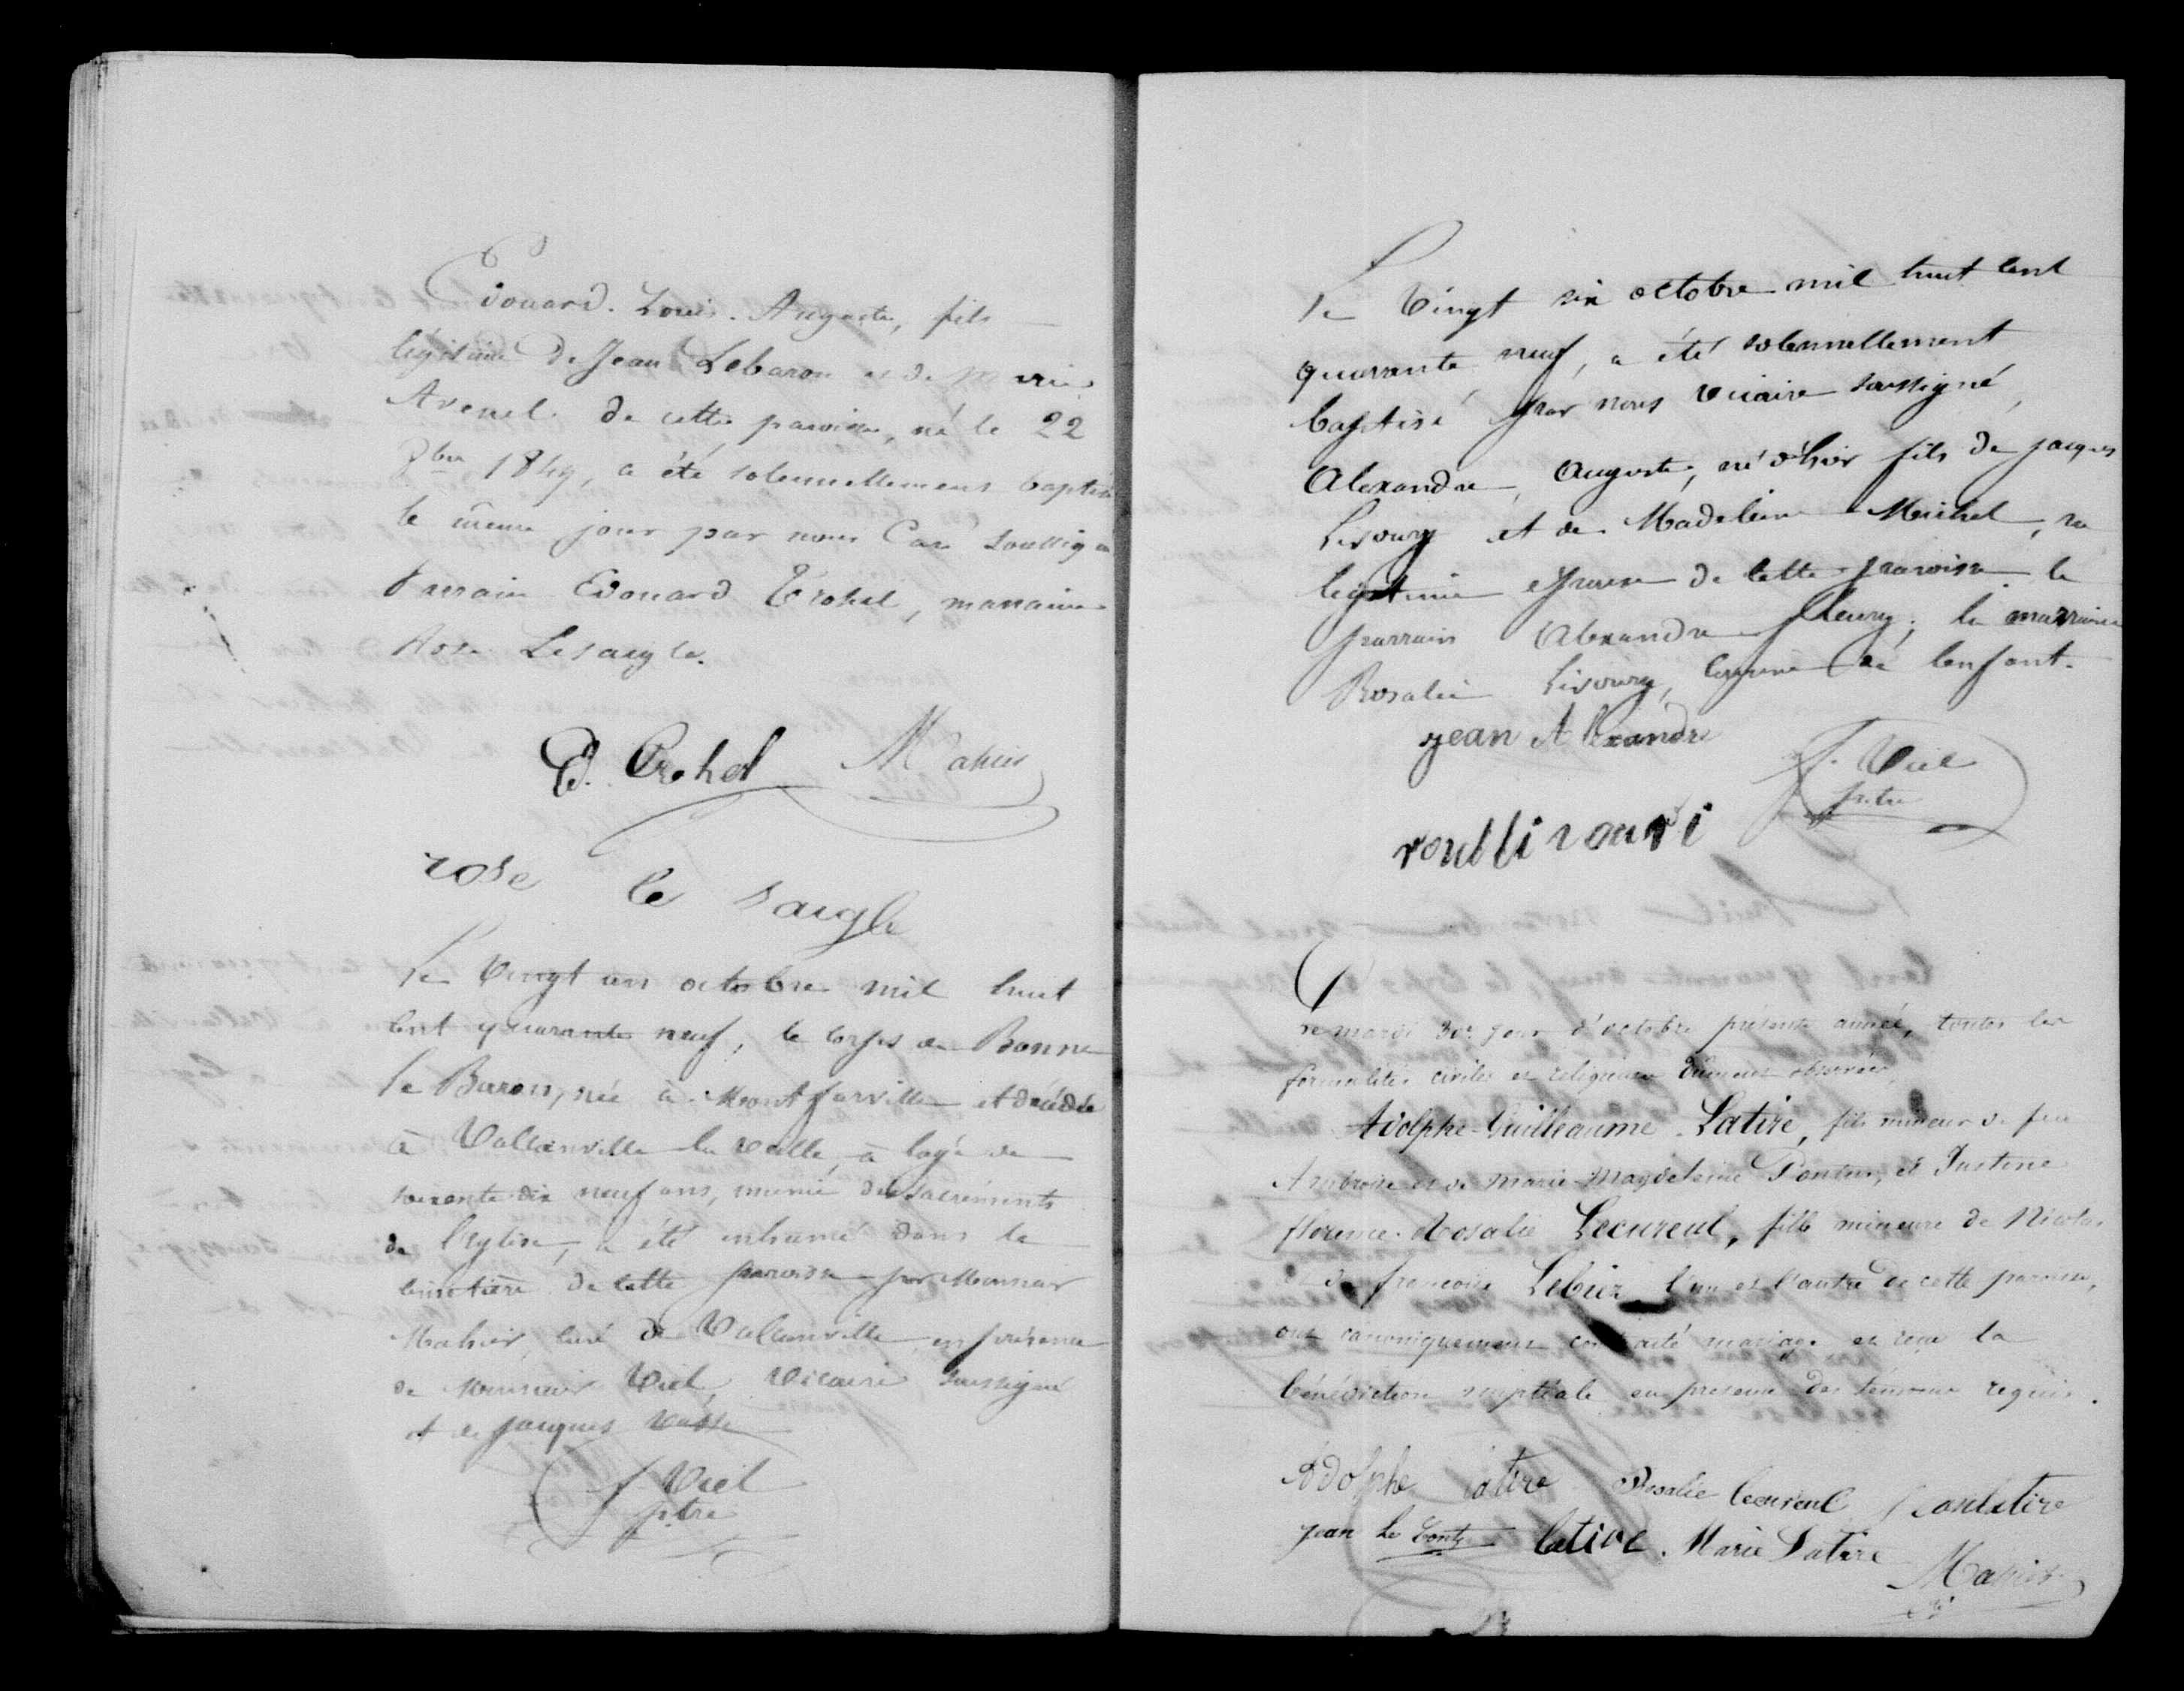 Edouard. Louis. Auguste, fils
légitime de Jean Lebaron et de Marie
Avenel de cette paroisse, né le 22
8bre 1849, a été solennellement baptisé
le même jour par nous Curé soussigné
Parrain Edouard Trohel, marraine
Rose Lesaigle.
E. Trohel Mahieu
rose le saigle
Le Vingt un octobre mil huit
cent quarante neuf, le corps de Bonne
Le Baron, née à Montfarville et décédée
à Valcanville la veille, à l'age de
soixante dix neuf ans, munie des sacrements
de l'église, a été inhumé dans le
cimetière de cette paroisse par Monsieur
Mahieu, curé de Valcanville, en présence
de Monsieur Viel, Vicaire soussigné
et de Jacques Vasse
f. Viel
ptre
Le Vingt six octobre mil huit cent
quarante neuf, a été solennellement
baptisé par nous vicaire soussigné,
Alexandre, Auguste, né d'hier fils de jacques
et de Madeleine Michel, sa
legitime epouse de cette paroisse. le
parrain Alexandre fleury; la marraine
Rosalie cousine de l'enfant.
jean Alexandre
f. Viel
ptre
Ce mardi 30e jour d'octobre présente année, toutes les
formalités civiles et religieuses dûment observées,
Adolphe-Guillaume Latire, fils mineur de feu
Ambroise et de Marie-Magdeleine et Justine
florence-Rosalie Lecureul, fille mineure de Nicolas
et de françoise l'un et l'autre de cette paroisse,
ont canoniquement contracté mariage et reçu la
bénédiction nuptiale en présence des témoins requis.
Adolphe latire Rosalie lecureul
jean Le Conte latire. Marie Latire
Mahieu